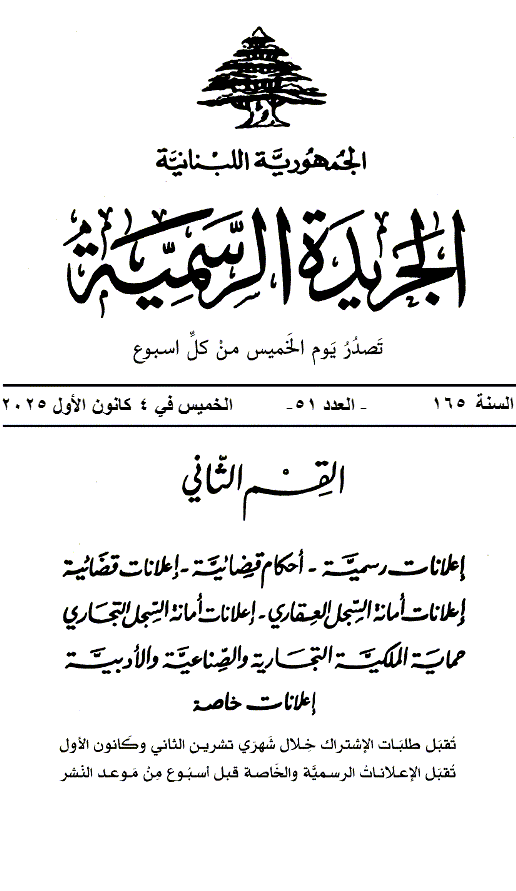 الجُمهُوريَّة اللبْنانيَّة
الجَريدَة الرسَّمِيَّة
تَصدُرُ يَوم الخَميس منْ كلِّ اسبوع
السنة ١٦٥ - العدد ٥١- الخميس في ٤ كانون الأول ٢٠٢٥
القِسْم الثّاني
إعلانات رسميَّة - أحكام قضائيَّة - إعلانات قضائية
إعلانات أمانة السِّجل العِقاري - إعلانات أمانة السِّجل التجاري
حماية الملكيَّة التجارية والصِّناعيَّة والأدبيَّة
إعلانات خاصة
تُقبَل طلبَات الإشتراك خِلال شَهرَي تشرين الثاني وكَانون الأول
تُقبَل الإعلاناتُ الرسميَّة والخَاصة قبل أسبُوع مِنْ مَوعد النَشر